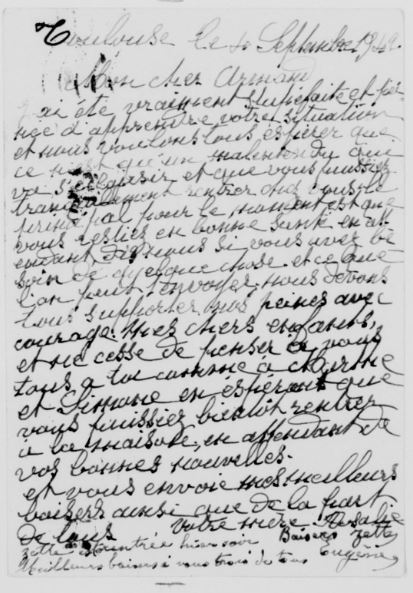 Toulouse le 4 Septembre 1942
Mon cher Armand
J'ai été vraiment stupéfaite et pei
née d'apprendre votre situation
et nous voulons tous espérer que
ce n'est qu'un malentendu qui
va s'éclaircir et que vous puissiez
tranquillement rentrer chez vous le
principal pour le moment est que
vous restiez en bonne santé en at
tendant dis nous si vous avez be
soin de quelque chose et ce que
l'on peut t'envoyer nous devons
tous supporter nos peines avec
courage mes chers enfants,
et ne cesse de penser à vous
tous, a toi comme à
et Simone en espérant que
vous puissiez bientôt rentrer
à la maison, en attendant de
vos bonnes nouvelles.
et vous envoie mes meilleurs
baisers ainsi que de la part
de tous votre mère Rosalie
est rentrée hier soir Baisers
Meilleurs baisers à vous trois de tous Eugénie